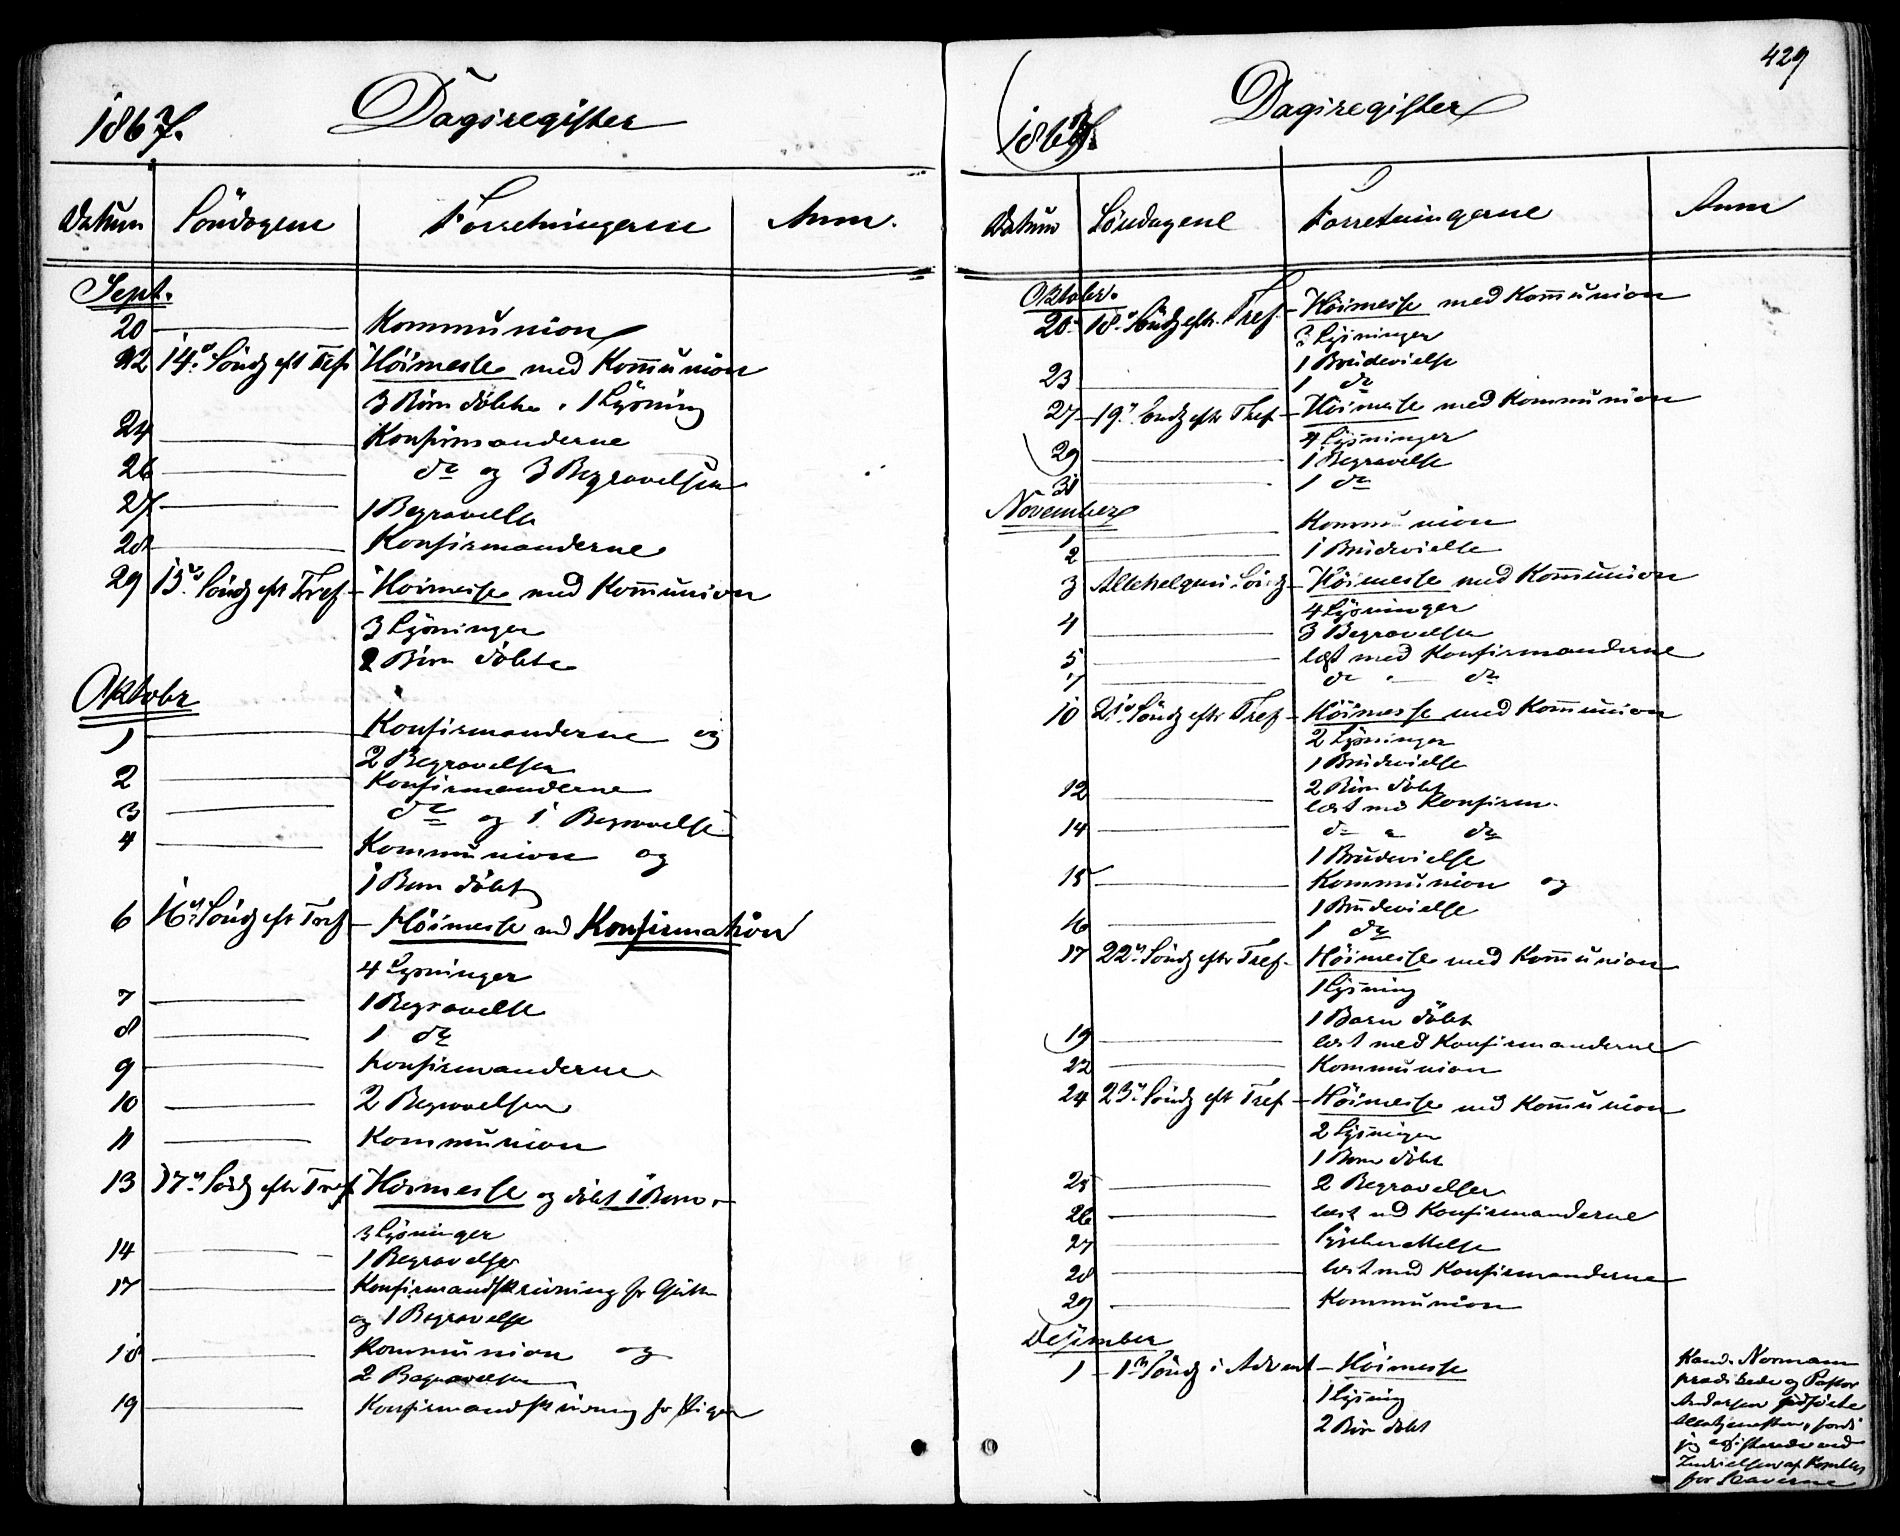 1867. Dagsregister
Datum Söndagene Forretningerne Anm.
Sept.
20 Kommunion
22 14de Söndg eft Tref. Höimesse med Kommunion
3 Börn döbte. 1 Lysning
24 Konfirmanderne
26 do og 3 Begravelser
27 1 Begravelse
28 Konfirmanderne
29 15de Söndg eft Tref. Höimesse med Kommunion
3 Lysninger
2 Börn döbte
Oktobr
1 Konfirmanderne og
2 Begravelser
2 Konfirmanderne
3 do og 1 Begravelse
4 Kommunion og
1 Barn döbt
6 16de Söndg eft Tref Höimesse med Konfirmation
4 Lysninger
7 1 Begravelse
8 1 do
9 Konfirmanderne
10 2 Begravelser
11 Kommunion
13 17de Söndg eftr Tref Höimesse og döbt 1 Barn.
3 Lysninger
14 1 Begravelse
17 Konfirmandskrivning for Gutter
og 1 Begravelse
18 Kommunion og
2 Begravelser
19 Konfirmandskrivning for Piger
429
1867. Dagsregister
Datum Söndagene Forretningerne Anm
Oktober.
20. 18de Söndg eftr. Tref. Höimesse med Kommunion
3 Lysninger
1 Brudevielse
23 1 do
27 19de Söndg eftr Tref Höimesse med Kommunion
4 Lysninger
29 1 Begravelse
31 1 do
November
1 Kommunion
2 1 Brudevielse
3 Allehelgens Söndg Höimesse med Kommunion
4 Lysninger
4 3 Begravelser
5 læst med Konfirmanderne
7 do " do
10 21de Söndg eftr Tref Höimesse med Kommunion
2 Lysninger
1 Brudevielse
2 Börn döbt
12 læst med Konfirm.
14 do " do
1 Brudevielse
15 Kommunion og
1 Brudevielse
16 1 do
17 22de Söndg eftr Tref. Höimesse med Kommunion
1 Lysning
1 Barn döbt
19 læst med Konfirmanderne
22 Kommunion
24 23de Söndg eft Tref Höimesse med Kommunion
2 Lysninger
1 Barn döbt
25 2 Begravelser
26 læst med Konfirmanderne
27
28 læst med Konfirmanderne
29 Kommunion
Desember
1 1ste Söndg i Advent Höimesse
1 Lysning
2 Börn döbt
Kand. Normann
prædikede og Pastor
Andersen udförte
Altertjenesten, fordi
jeg
Indvielsen af
for Slaverne